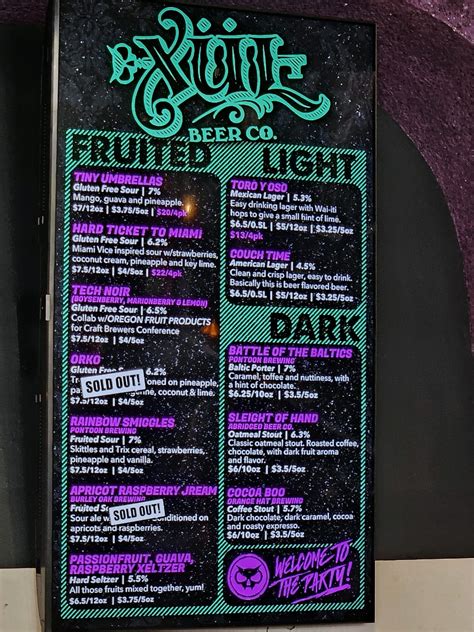 XÜL
BEER CO.
FRUITED
TINY UMBRELLAS
Gluten Free Sour | 7%
Mango, guava and pineapple.
$7/12oz | $3.75/5oz | $20/4pk
HARD TICKET TO MIAMI
Gluten Free Sour | 6.2%
Miami Vice inspired sour w/strawberries,
coconut cream, pineapple and key lime.
$7.5/12oz | $4/5oz | $22/4pk
TECH NOIR
(BOYSENBERRY, MARIONBERRY & LEMON)
Gluten Free Sour | 6.5%
Collab w/OREGON FRUIT PRODUCTS
for Craft Brewers Conference
$7.5/12oz | $4/5oz
ORKO
Gluten Free 6.2%
SOLD OUT!
pineapple,
coconut & lime.
$7.5/12oz | $4/5oz
RAINBOW SMIGGLES
PONTOON BREWING
Fruited Sour | 7%
Skittles and Trix cereal, strawberries,
pineapple and vanilla.
$7.5/12oz | $4/5oz
APRICOT RASPBERRY JREAM
BURLEY OAK BREWING
Fruited
SOLD OUT!
Sour ale conditioned on
apricots and raspberries.
$7.5/12oz | $4/5oz
PASSIONFRUIT, GUAVA,
RASPBERRY XELTZER
Hard Seltzer | 5.5%
All those fruits mixed together, yum!
$6.5/12oz | $3.75/5oz
LIGHT
TORO Y OSO
Mexican Lager | 5.3%
Easy drinking lager with Wai-iti
hops to give a small hint of lime.
$6.5/0.5L | $5/12oz | $3.25/5oz
$13/4pk
COUCH TIME
American Lager | 4.5%
Clean and crisp lager, easy to drink.
Basically this is beer flavored beer.
$6.5/0.5L | $5/12oz | $3.25/5oz
DARK
BATTLE OF THE BALTICS
PONTOON BREWING
Baltic Porter | 7%
Caramel, toffee and nuttiness, with
a hint of chocolate.
$6.25/10oz | $3.5/5oz
SLEIGHT OF HAND
ABRIDGED BEER CO.
Oatmeal Stout | 6.3%
Classic oatmeal stout. Roasted coffee,
chocolate, with dark fruit aroma
and flavor.
$6/10oz | $3.5/5oz
COCOA BOO
ORANGE HAT BREWING
Coffee Stout | 5.7%
Dark chocolate, dark caramel, cocoa
and roasty espresso.
$6/10oz | $3.5/5oz
WELCOME TO
THE PARTY!